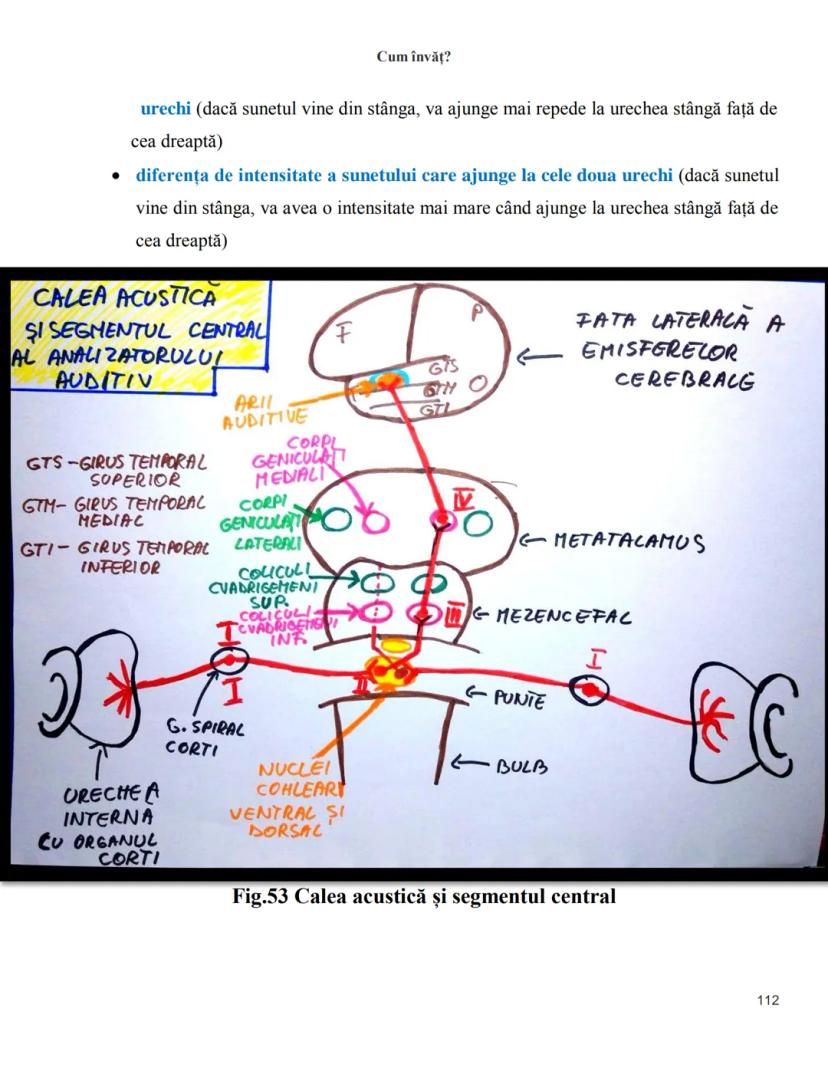 Cum învăț?
urechi (dacă sunetul vine din stânga, va ajunge mai repede la urechea stângă față de
cea dreaptă)
• diferența de intensitate a sunetului care ajunge la cele doua urechi (dacă sunetul
vine din stânga, va avea o intensitate mai mare când ajunge la urechea stângă față de
cea dreaptă)
CALEA ACUSTICĂ
ȘI SEGMENTUL CENTRAL
AL ANALIZATORULUI
AUDITIV
F
P
O
GTS
GTM
GTI
FATA LATERALĂ A
EMISFERELOR
CEREBRALE
ARII
AUDITIVE
GTS - GIRUS TEMPORAL
SUPERIOR
GTM - GIRUS TEMPORAL
MEDIAL
GTI - GIRUS TEMPORAL
INFERIOR
CORPI
GENICULAȚI
MEDIALI
CORPI
GENICULAȚI
LATERALI
IV
METATALAMUS
COLICULI
CVADRIGEMENI
SUP.
COLICULI
CVADRIGEMENI
INF.
III
MEZENCEFAL
I
I
I
II
G. SPIRAL
CORTI
PUNTE
BULB
URECHEA
INTERNA
CU ORGANUL
CORTI
NUCLEI
COHLEARI
VENTRAL ȘI
DORSAL
Fig.53 Calea acustică și segmentul central
112